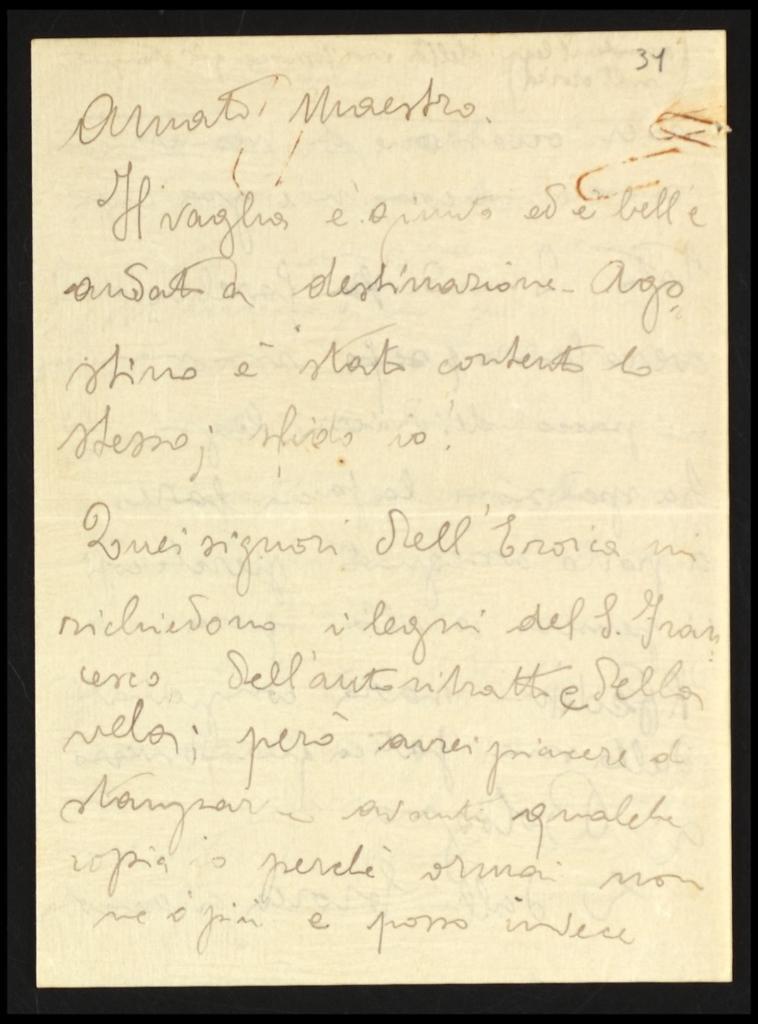 31
Amato Maestro.
Il vaglia è giunto ed è bell'e
andato a destinazione - Ago=
stino è stato contento lo
stesso; sfido io!
Quei signori dell'Eroica mi
richiedono i legni del S. Fran=
cesco dell'autoritratto e della
vela; però avrei piacere di
stamparne avanti qualche
copia io perchè ormai non
ne ò più e posso invece